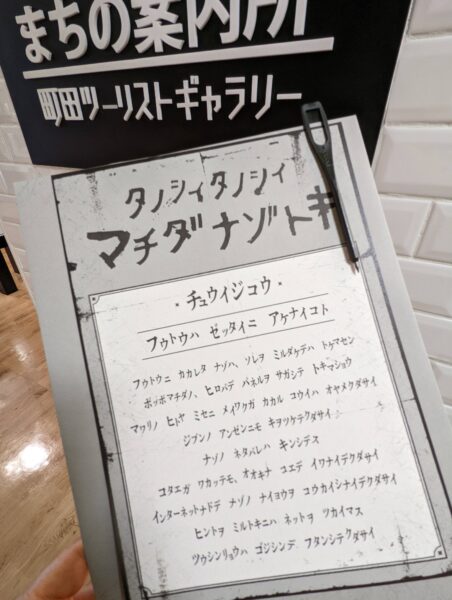 まちの案内所
町田ツーリストギャラリー
タノシイタノシイ
マチダナゾトキ
・チュウイジコウ・
フウトウハ ゼッタイニ アケナイコト
フウトウニ カカレタ ナゾハ、ソレヲ ミルダケデハ トケマセン
ポッポマチダノ、ヒロバデ パネルヲ サガシテ トキマショウ
マワリノ ヒトヤ ミセニ メイワクガ カカル コウイハ オヤメクダサイ
ジブンノ アンゼンニモ キヲツケテクダサイ
ナゾノ ネタバレハ キンシデス
コタエガ ワカッテモ、オオキナ コエデ イワナイデクダサイ
インターネットナドデ ナゾノ ナイヨウヲ コウカイシナイデクダサイ
ヒントヲ ミルトキニハ ネットヲ ツカイマス
ツウシンリョウハ ゴジシンデ フタンシテクダサイ